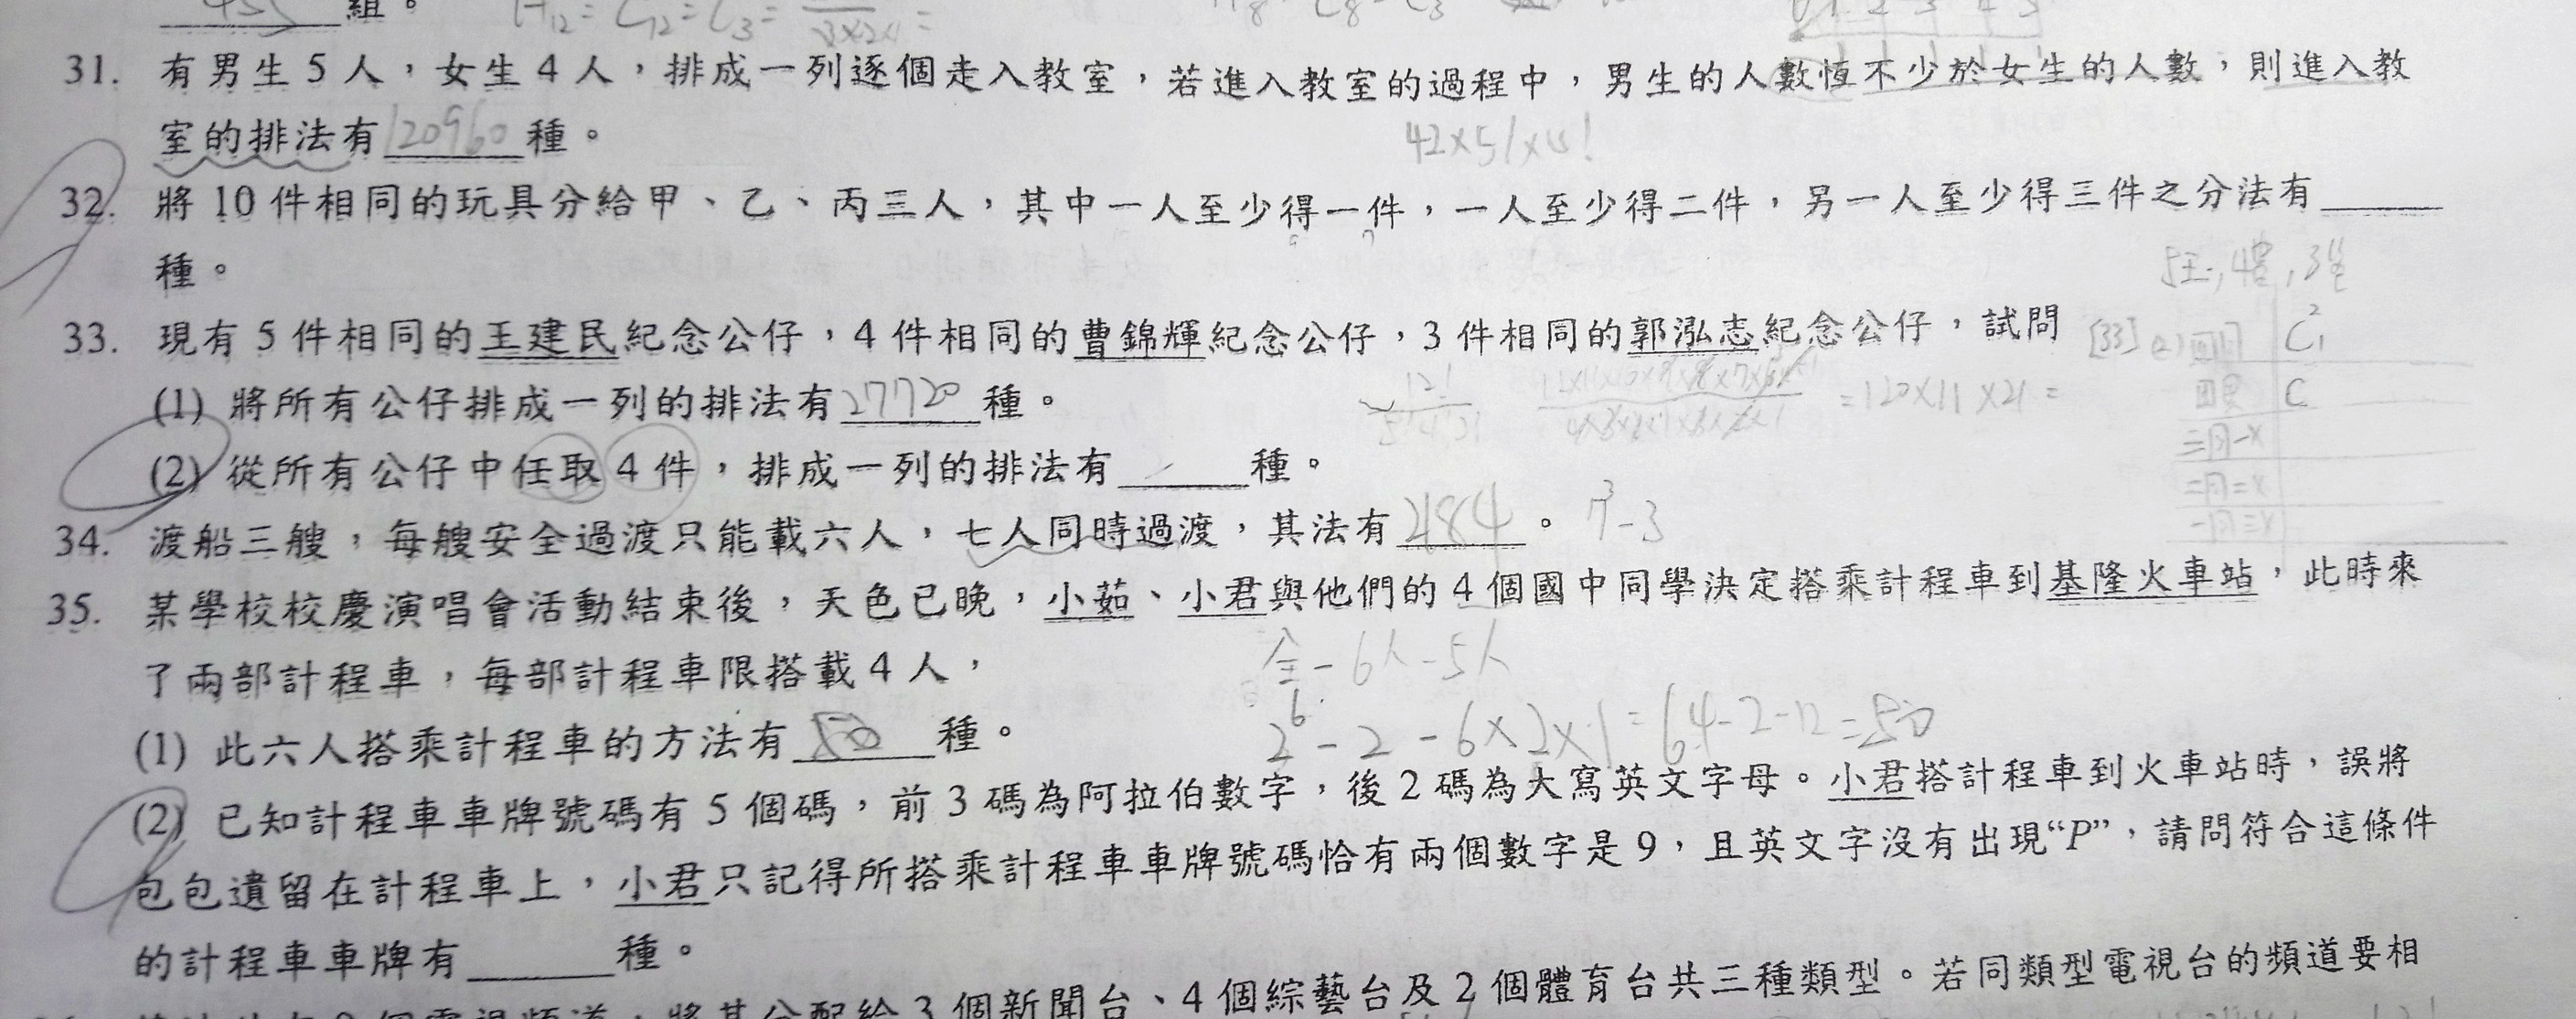 455 組。
31. 有男生 5 人，女生 4 人，排成一列逐個走入教室，若進入教室的過程中，男生的人數恆不少於女生的人數，則進入教
室的排法有 120960 種。
42×5!×4!
32. 將 10 件相同的玩具分給甲、乙、丙三人，其中一人至少得一件，一人至少得二件，另一人至少得三件之分法有______
種。
5王,4曹,3郭
33. 現有 5 件相同的王建民紀念公仔，4 件相同的曹錦輝紀念公仔，3 件相同的郭泓志紀念公仔，試問
[33] (2) 四同
(1) 將所有公仔排成一列的排法有 27720 種。
=120×11×21=
(2) 從所有公仔中任取 4 件，排成一列的排法有______種。
34. 渡船三艘，每艘安全過渡只能載六人，七人同時過渡，其法有 2184 。
35. 某學校校慶演唱會活動結束後，天色已晚，小茹、小君與他們的 4 個國中同學決定搭乘計程車到基隆火車站，此時來
了兩部計程車，每部計程車限搭載 4 人，
全-6人-5人
(1) 此六人搭乘計程車的方法有 50 種。
2⁶-2-6×2×1=64-2-12=50
(2) 已知計程車車牌號碼有 5 個碼，前 3 碼為阿拉伯數字，後 2 碼為大寫英文字母。小君搭計程車到火車站時，誤將
包包遺留在計程車上，小君只記得所搭乘計程車車牌號碼恰有兩個數字是 9，且英文字沒有出現“P”，請問符合這條件
的計程車車牌有______種。
3 個新聞台、4 個綜藝台及 2 個體育台共三種類型。若同類型電視台的頻道要相